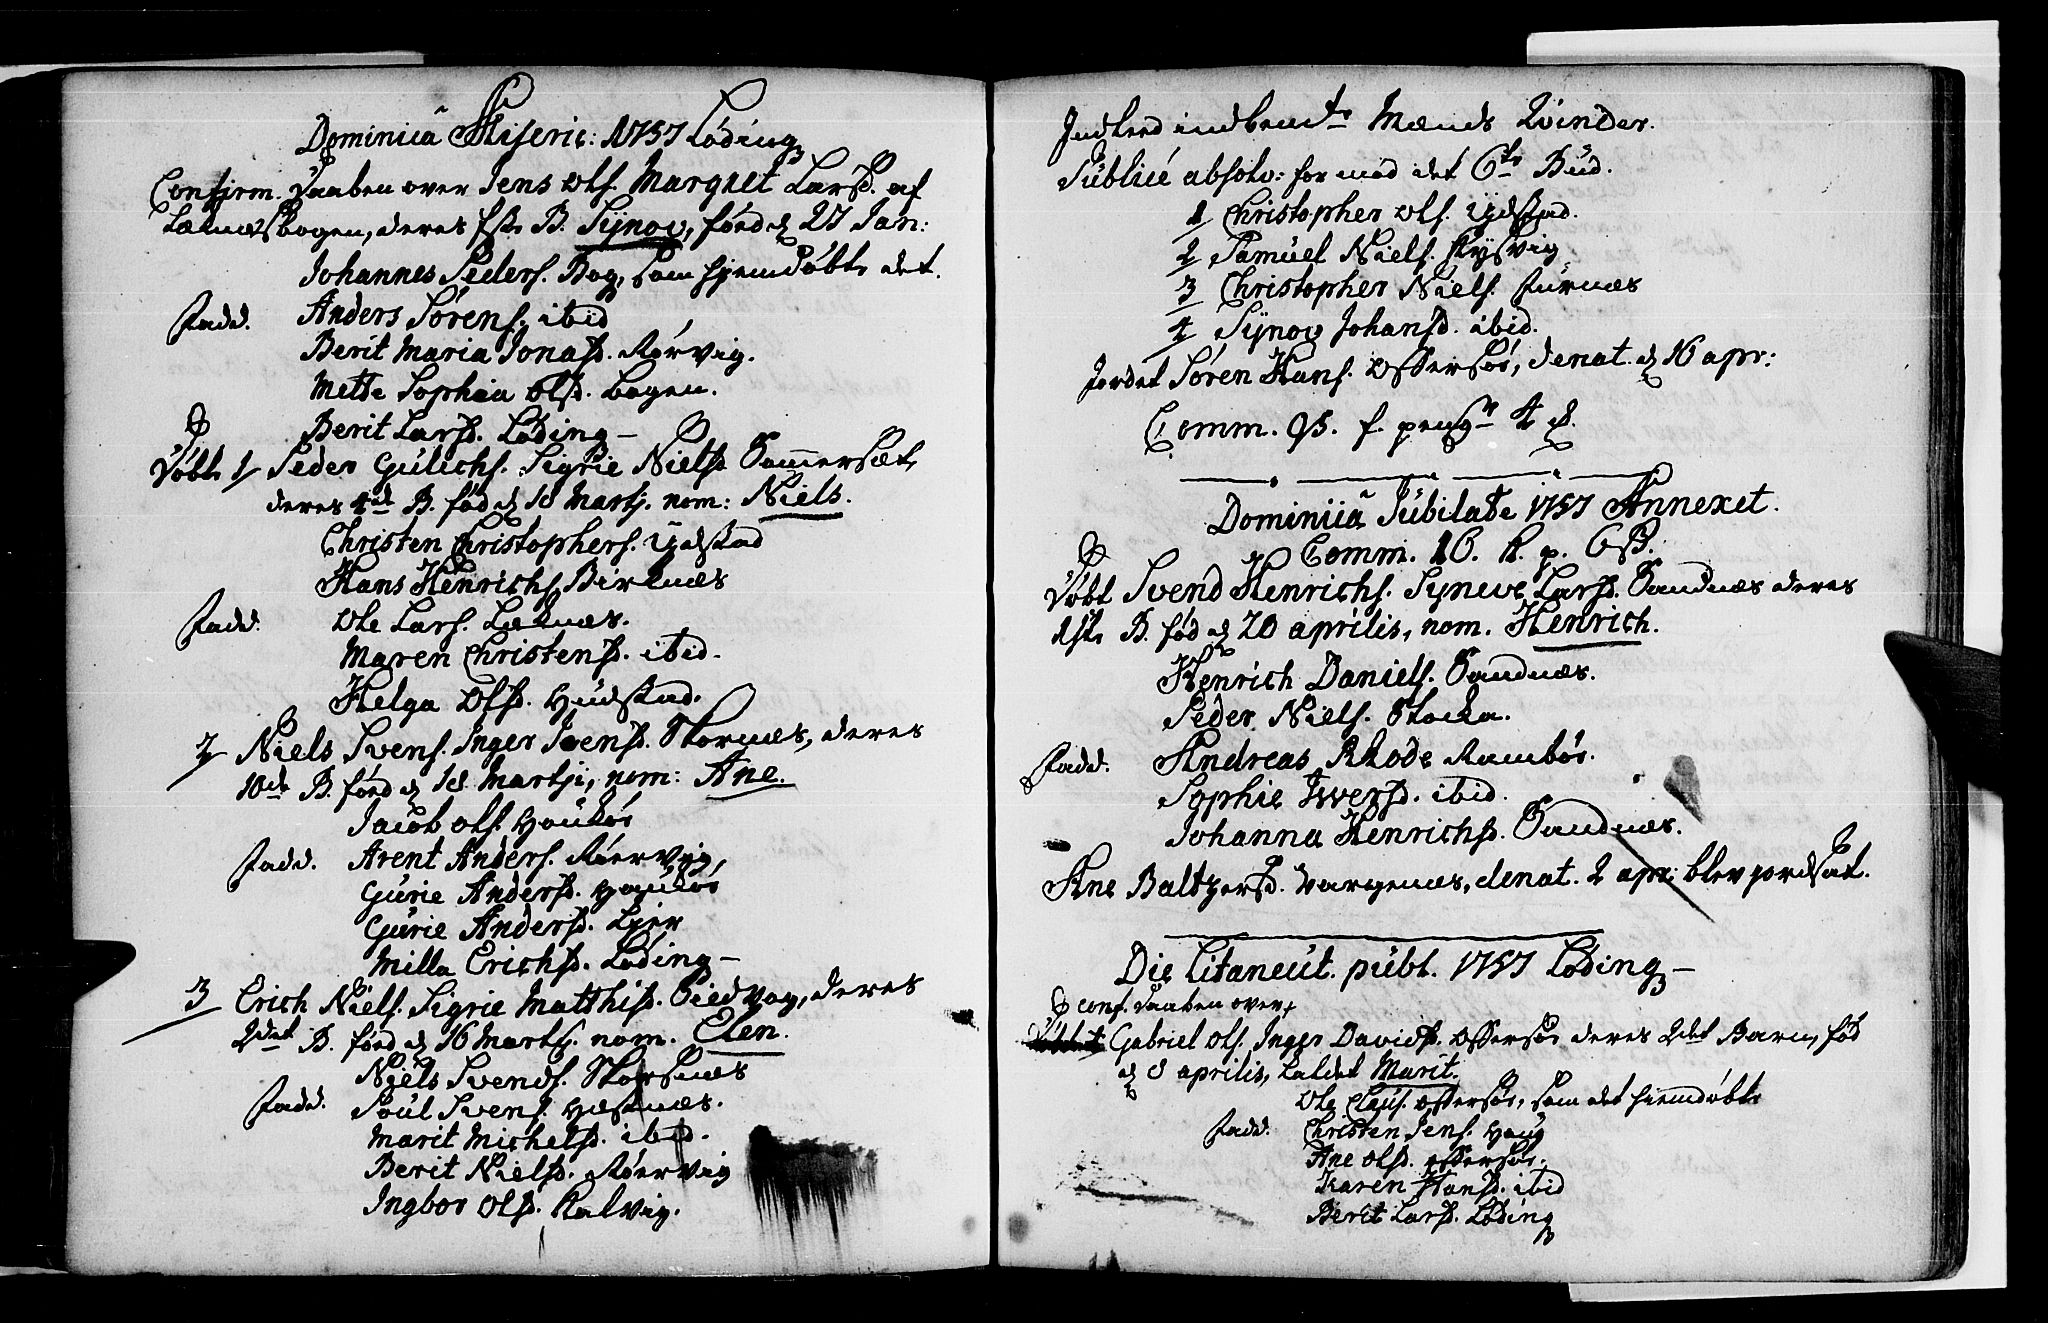 Dominicâ Miseric: 1757 Løding
Confirm. Daaben over Jens Ols. Margret Larsd. af
Læknæsbogen, deres 1ste B. Synov, førd d 27 Jan:
Johannes Peders. Bog, som hjemdøbte det.
Fadd. Anders Sørens. ibid
Berit Maria Jonasd. Rørvig.
Mette Sophia Olsd. Bogen.
Berit Larsd. Løding
Døbt 1 Peder Gulichs. Sigrie Nielsd Sommersæt,
deres 4de B. fød d 18 Martj. nom: Niels.
Christen Christophers. Ydstad
Hans Henrichs. Birknæs
Fadd. Ole Lars. Læknæs.
Maren Christensd. ibid.
Helga Olsd. Hudstad.
2 Niels Svens. Inger Svensd. Skornæs, deres
10de B. førd d 18 Martji, nom: Ane.
Jacob Ols. Haukøs
Fadd. Arent Anders. Røervig,
Gurie Andersd. Haukøs
Gurie Andersd. Lier
Milla Erichsd. Løding
3 Erich Niels. Sigrie Matthisd. Breedvog, deres
2det B. førd d 16 Martj. nom. Elen.
Niels Svends. Skorsnæs
Fadd. Poul Svens. Hæstnæs.
Marit Michelsd. ibid.
Berit Nielsd. Røervig
Ingbor Olsd. Kalvig.
Indleed indbemte Mænds Qvinder.
Publicé absolv: for mod det 6te Bud.
1 Christopher Ols. Ydstad.
2 Samuel Niels. Kysvig
3 Christopher Niels. Furnæs
4 Synov Johansd. ibid.
Jordet Søren Hans. Offersøe, denat. d 16 apr:
Comm. 95. f. peng
Dominicâ Jubilate 1757 Annexet.
Comm. 16. K. p. 6 ß.
Døbt Svend Henrichs. Syneve Larsd. Sandnæs deres
1ste B. fød d 20 aprilis, nom. Henrich.
Henrich Daniels. Sandnæs.
Peder Niels. Stocka.
Fadd. Andreas Rhode Rambøe.
Sophie Iwersd. ibid.
Johanna Henrichsd. Sandnæs.
Ane Baltzersd. Vargenæs, denat. 2 apr: blev jordsat.
Die Litaneut. publ. 1757 Løding
conf. Daaben over
Gabriel Ols. Inger Davidsd. Offersøe deres 2det Barn, fød
d 8 aprilis, kaldet Marit.
Ole Claus. Offersøe, som det hiemdøbte
Fadd. Christen Jens. Haug
Ane Olsd. Offersøe.
Karen Hansd. ibid
Berit Larsd. Løding